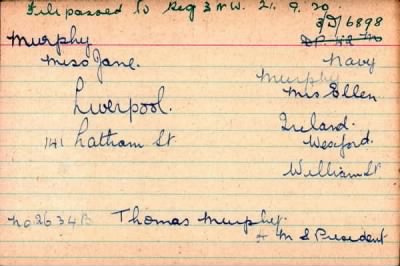 File passed to Reg 3 N.W. 21.9.20.
3/D/6898
Murphy
Miss Jane.
Navy
Murphy
Mrs Ellen
Liverpool.
141 Latham St
Ireland.
Wexford.
William St
No 2634B Thomas Murphy.
H M S President